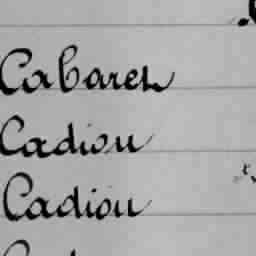 Cabaret
Cadiou
Cadiou